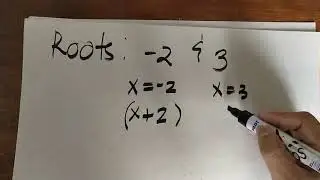 Roots: -2 & 3
x=-2 x=3
(x+2)